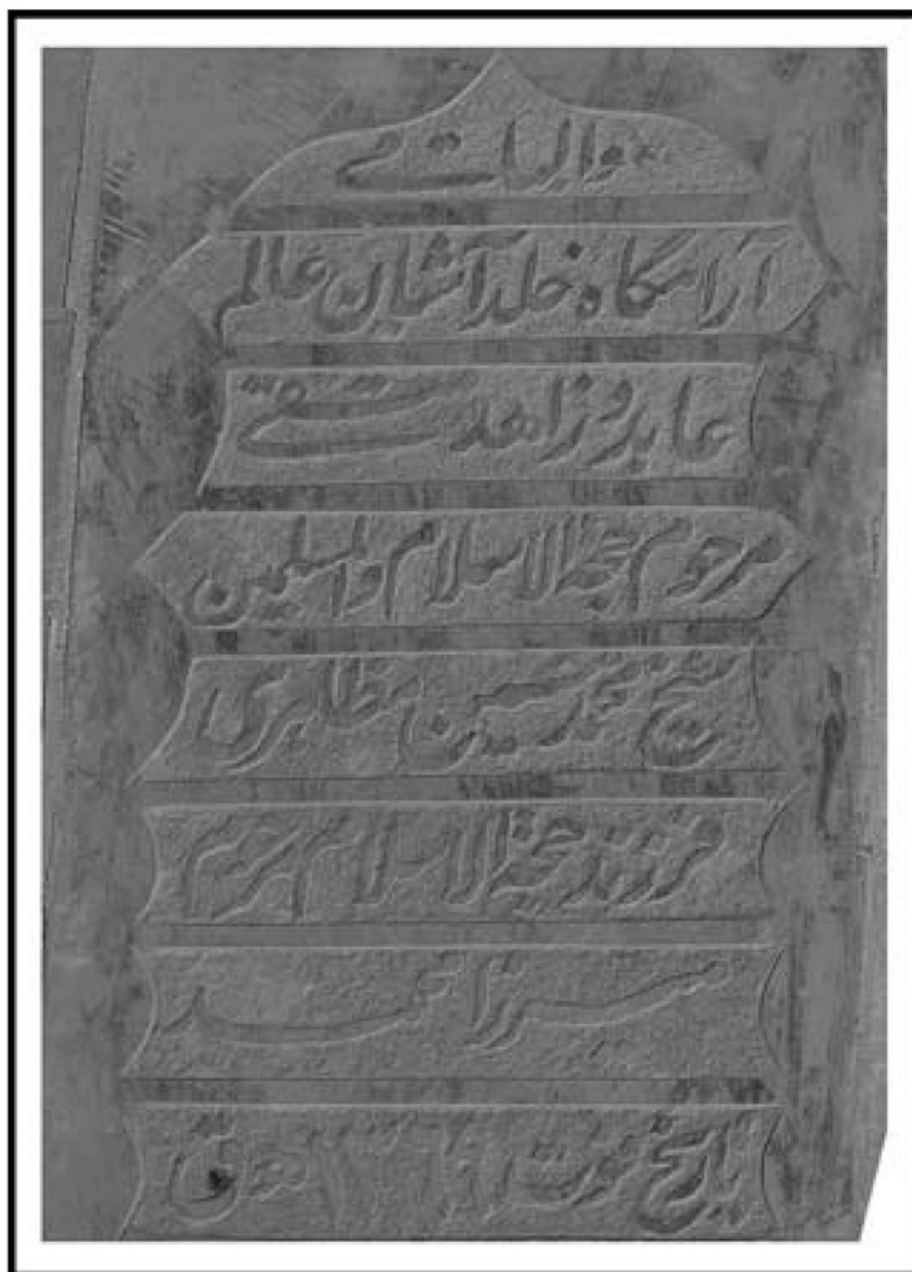 هو الباقی
آرامگاه خلد آشیان عالم
عابد و زاهد متقی
مرحوم حجةالاسلام والمسلمین
شیخ محمد حسین مظاهری
فرزند حجةالاسلام مرحوم
میرزا
تاریخ فوت